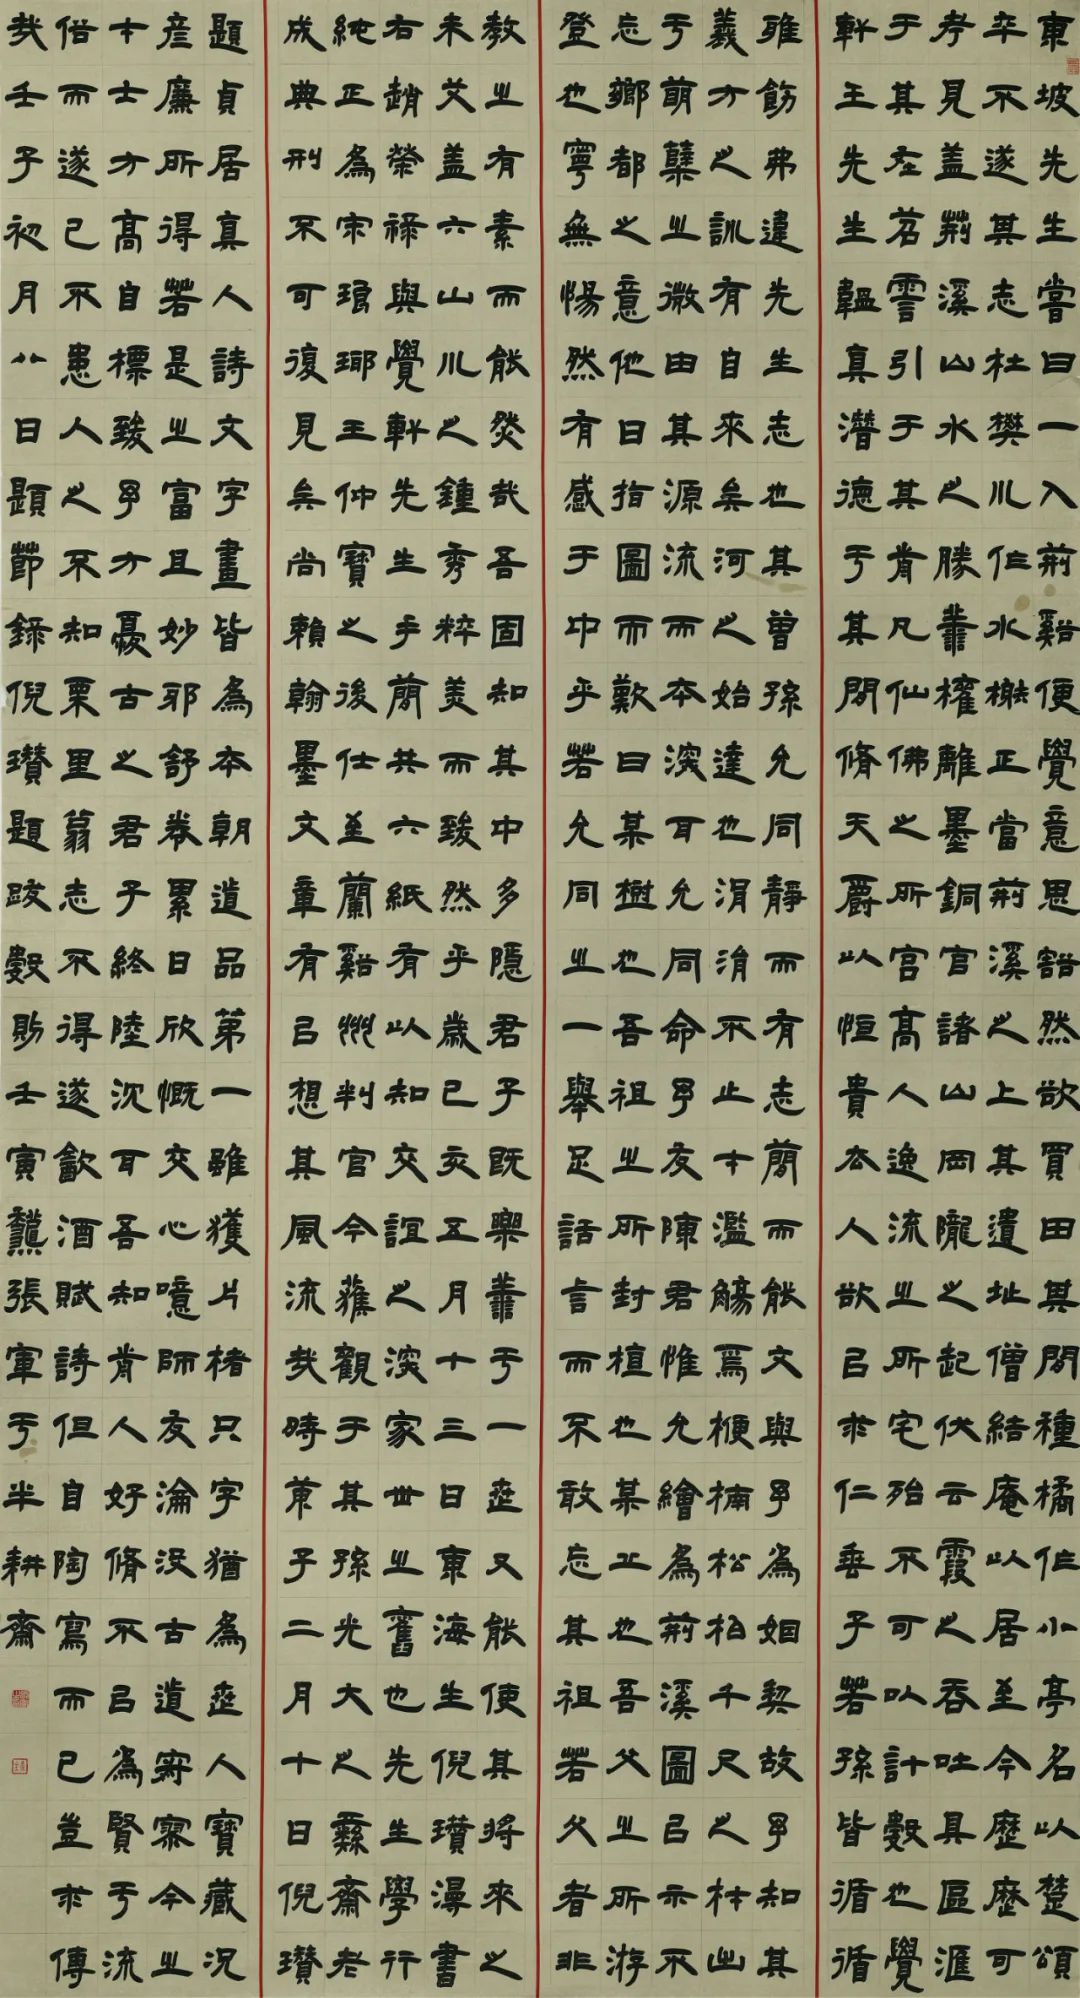 東坡先生嘗曰一入荊谿便覺意思豁然欲買田其間種橘作小亭名以楚頌
卒不遂其志杜樊川作水榭正當荊溪之上其遺址僧結庵以居至今歷歷可
考見蓋荊溪山水之勝叢榷離墨銅官諸山岡隴之起伏云霞之吞吐具區滙
于其左苕霅引于其背凡仙佛之所宮高人逸流之所宅殆不可以計數也覺
軒王先生韞真潛德于其間脩天爵以恒貴去人欲以求仁垂子若孫皆循循
雅飭弗違先生志也其曾孫允同靜而有志簡而能文與予為姻契故予知其
義方之訓有自來矣河之始達也涓涓不止才濫觴焉楩楠松柏千尺之材出
于萌櫱之微由其源流而本深耳允同命予友陳君惟允繪為荊溪圖以示不
忘鄉都之意他日指圖而歎曰某樹也吾祖之所封植也某丘也吾父之所游
登也寧無惕然有感于中乎若允同之一舉足話言而不敢忘其祖若父者非
教之有素而能然哉吾固知其中多隱君子既樂叢于一世又能使其將來之
未艾蓋六山川之鍾秀粹美而致然乎歲己亥五月十三日東海生倪瓚漫書
右趙榮祿與覺軒先生手簡共六紙有以知交誼之深家世之舊也先生學行
純正為宋琅瑘王仲寶之後仕至蘭谿州判官今獲觀于其孫光大之繇齋老
成典刑不可復見矣尚賴翰墨文章有以想其風流哉時甲子二月十日倪瓚
題貞居真人詩文字畫皆為本朝道品第一雖獲片楮只字猶為世人寶藏況
彥廉所得若是之富且妙邪舒卷累日欣慨交心噫師友淪沒古道寂寥今之
才士方高自標致予方憂古之君子終陸沉耳吾知昔人好脩不以為賢于流
俗而遂已不患人之不知栗里翁志不得遂飲酒賦詩但自陶寫而已豈求傳
哉壬子初月八日題節錄倪瓚題跋數則壬寅龝張軍于半耕齋